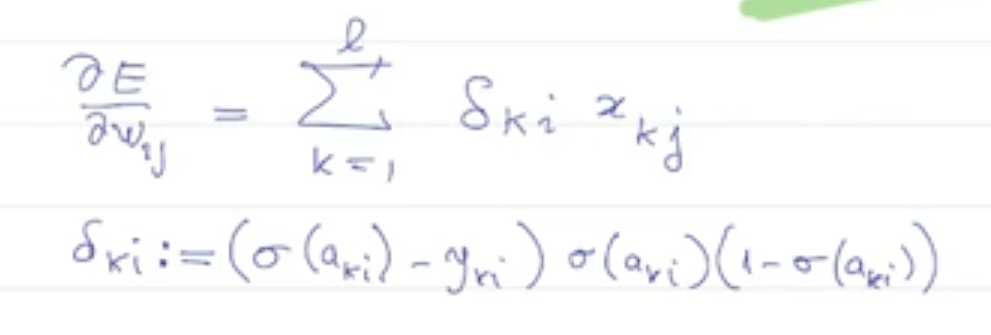 ∂E/∂w_{ij} = ∑_{k=1}^{ℓ} δ_{ki} x_{kj}
δ_{ki} := (σ(a_{ki}) - y_{ki}) σ(a_{ki})(1-σ(a_{ki}))